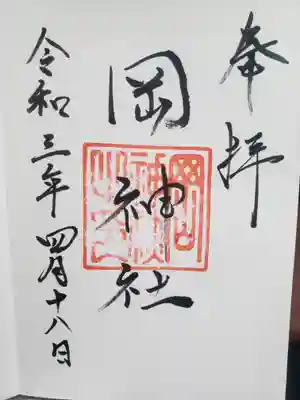 奉拝
岡神社
令和三年四月十八日